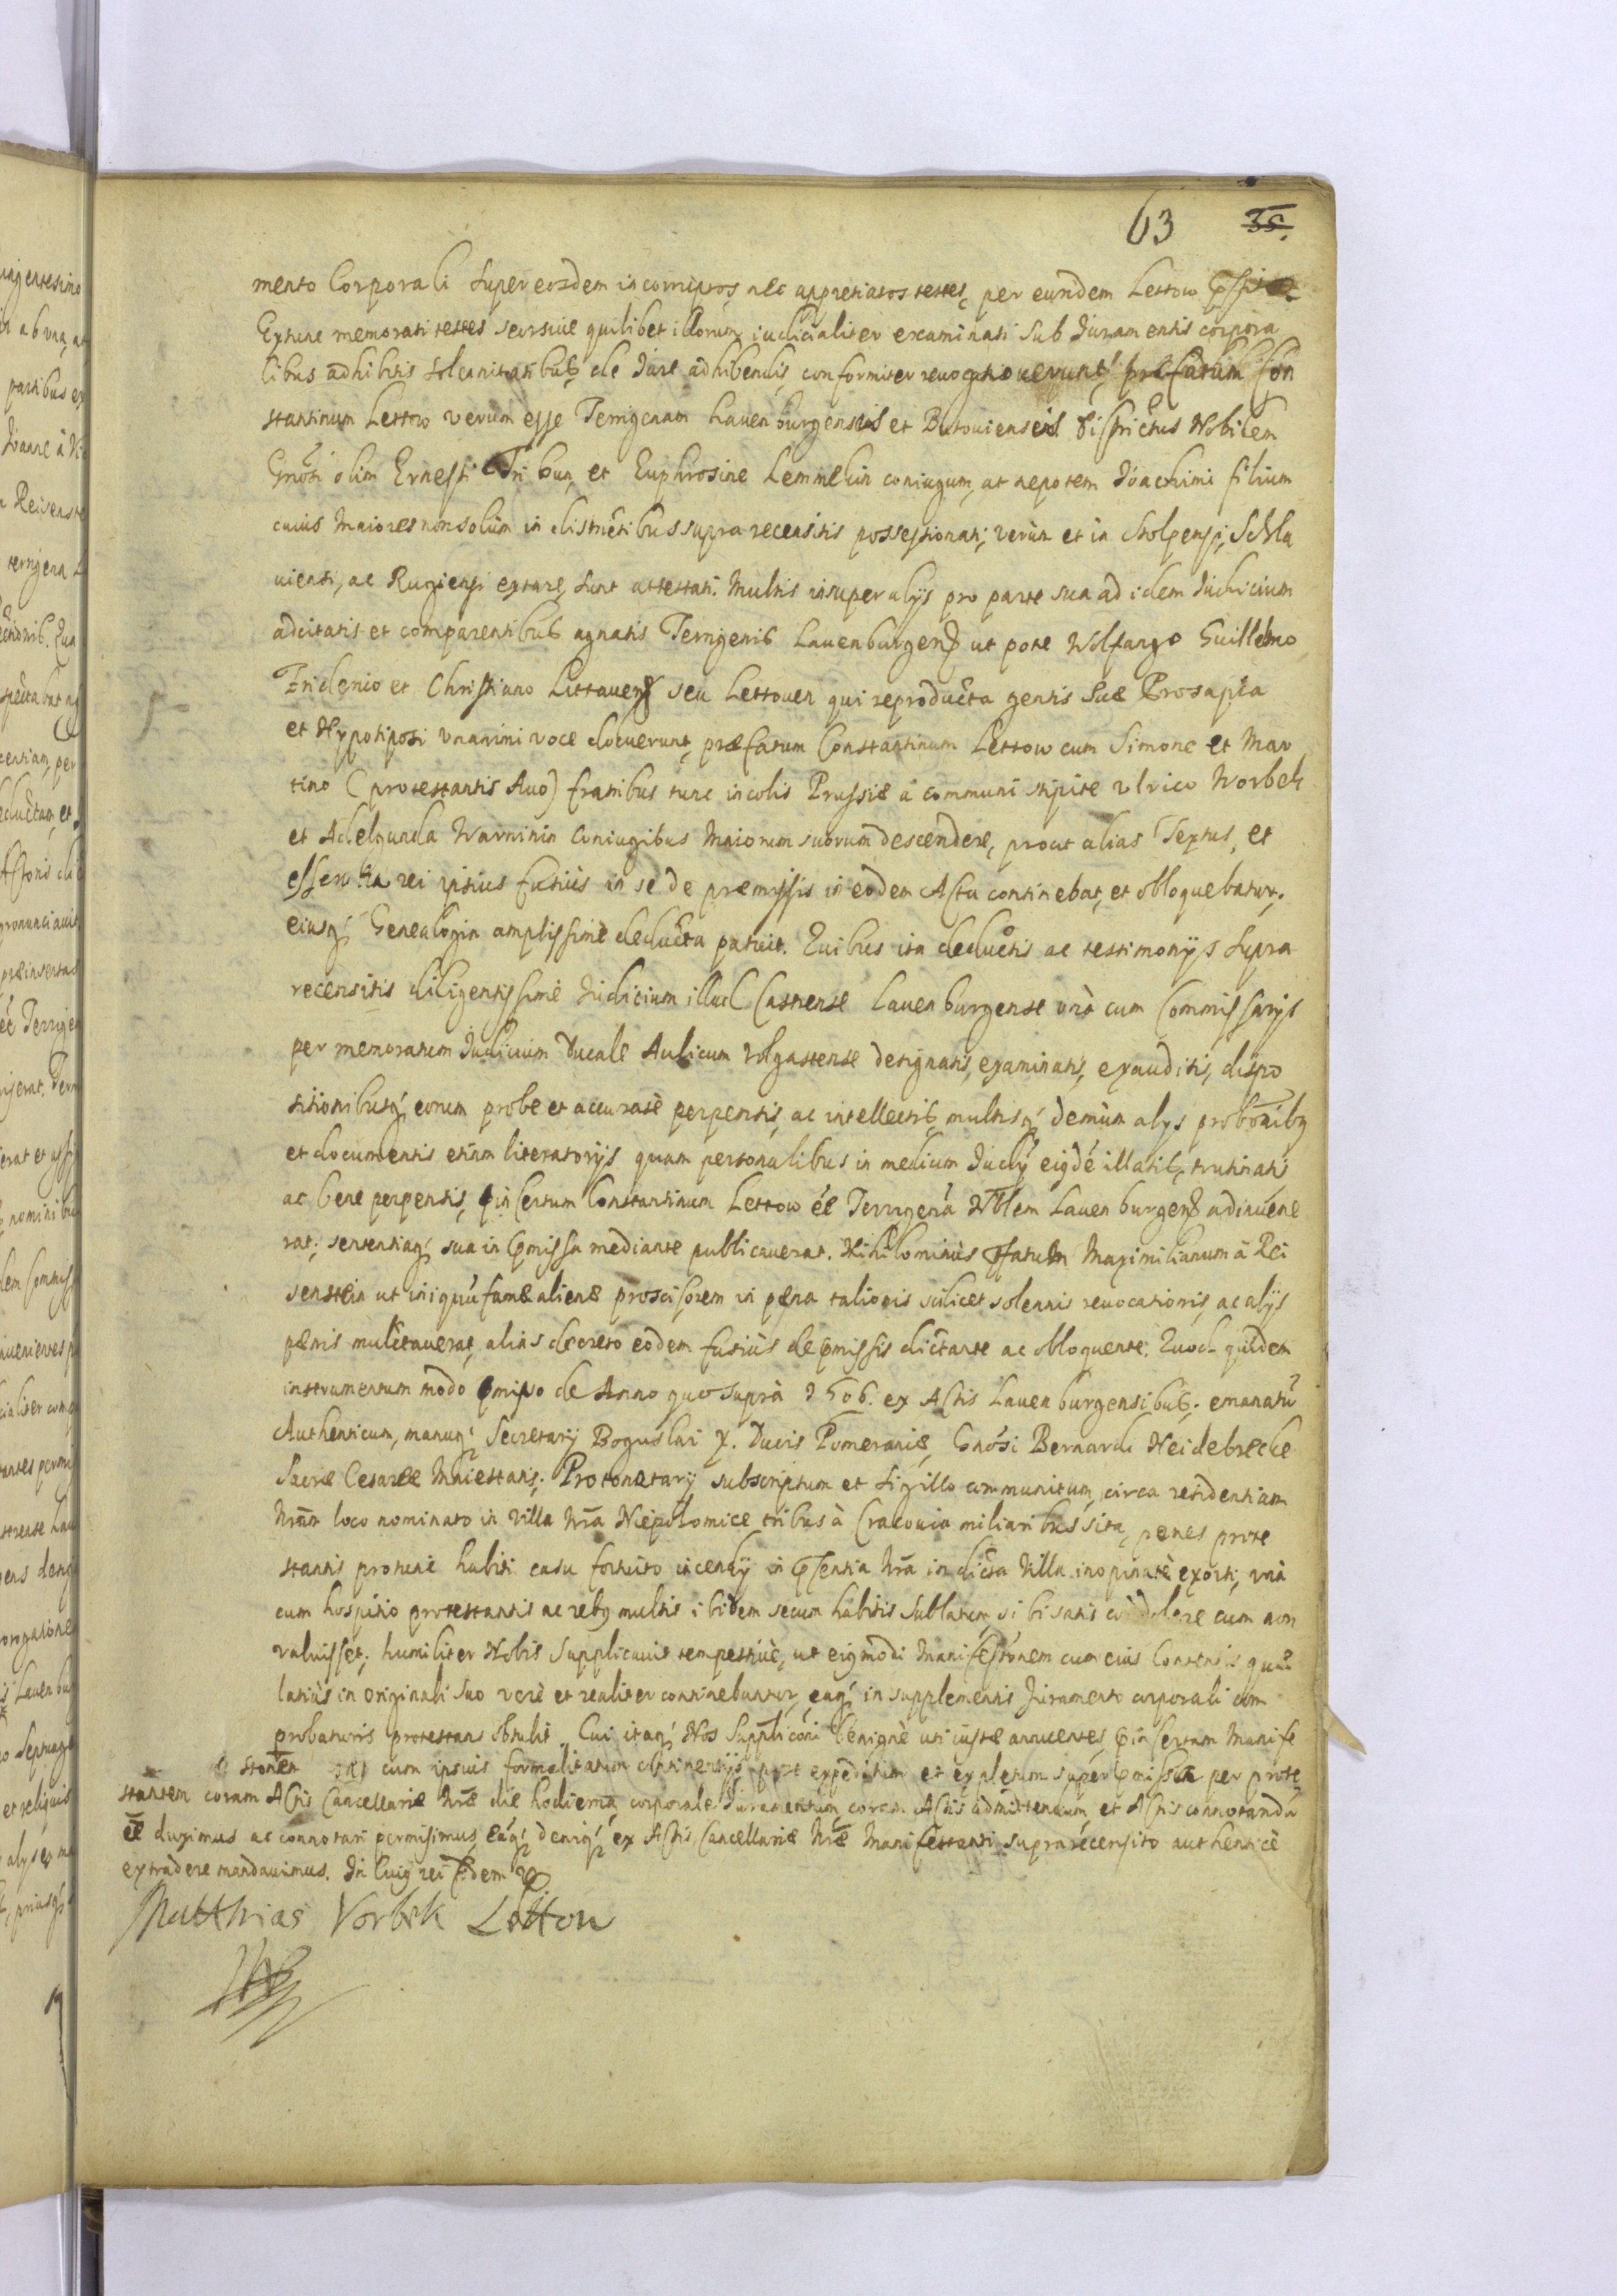 63 35.
mento Corporali super eosdem incorruptos nec appretiatos testes, per eundem Lettow
Extunc memorati testes seorsive quilibet illorum iudicialiter examinati sub Iuramentis corpora
libus adhibitis solennitatibus, de Iure adhibendis, conformiter recognoverunt, præfatum Con
stantinum Lettow verum esse Terrigenam Lauenburgensis et Butouiensis districtus Nobilem
Gnosi olim Ernesti Tribun, et Euphrosine Lemmekin coniugum, at nepotem Ioachimi filium
cuius Maiores non solum in districtibus supra recensitis possessionati, verum et in Stolpensi, Schla
uiensi, ac Rugiensi extare, sunt attestati. Multis insuper alijs pro parte sua ad idem Iudicium
adcitatis et comparentibus agnatis Terrigenis Lauenburgens ut pote Wolfango Guillelmo
Friderico et Christiano Littauen seu Lettouen qui reproducta gentis suæ Prosapia
et Hypotiposi unanimi voce docuerunt, præfatum Constantinum Lettow cum Simone et Mar
tino (protestantis Auo) fratribus tunc incolis Prussiæ a communi stipite Ulrico Worbek
et Adelgunda Warninin Coniugibus Maiorum suorum descendere, prout alias Textus, et
essentia rei ipsius fusius in se de præmissis in eodem Actu continebat, et obloquebatur.
eiusq Genealogia amplissime deducta patuit. Quibus ita deductis ac testimonijs supra
recensitis diligentissime Iudicium illud Castrense Lauenburgense una cum Commissarijs
per memoratum Iudicium Ducale Aulicum Wolgastense designatis, examinatis, exauditis, dispo
sitionibusq eorum probe et accurate perpensis, ac intellectis, multisq demum alys probonibq
et documentis etiam literatorijs quam personalibus in medium Iudy eigde illatis, trutinatis
ac bene perpensis, insertum Constantinum Lettow ee Terrigena Nblem Lauenburgens adinuene
rat, sententiaq sua in pmissa mediante publicauerat. Nihilominus Maximilianum a Rei
senstein ut iniquu famæ alienæ proscisorem in pæna talionis scilicet solennis reuocationis, ac alijs
pænis mulctauerat, alias decreto eodem fusius de pmissis dictante ac obloquente. Quod quidem
instrumentum modo pmisso de Anno quo supra 1506. ex Actis Lauenburgensibus. emanatu
Authenticum, manuq Secretarij Boguslai X. Ducis Pomeraniæ, Gnosi Bernardi Heidebrecke
Sacræ Cesareæ Maiestatis Protonotarij subscriptum et sigillo communitum, circa residentiam
Nram loco nominato in Villa Nra Niepolomice tribus a Cracouia miliaribus sita, penes prote
stantis protunc habiti casu fortuito incendij in psentia Nra in dicta Villa inopinate exorti, una
cum hospitio protestantis ac rebq multis ibidem secum habitis sublatum, sibi satis dolere cum non
valuisset, humiliter Nobis supplicauit tempestiue, ut eigmodi Manifestonem cum eius Contentis quæ
latius in Originali suo vere et realiter continebantur, eaq in supplementis Iuramento corporali com
probaturis protestans obtulit. Cui itaq Nos suppliconi benigne uti iustæ annuentes, insertam Manife
stonem cum ipsius formalitatum continentijs post expeditum et expletum super pmissa per prote
stantem coram Actis Cancellariæ Nræ die hodierna corporale Iuramentum coram Actis admittendum, et Actis connotandu
ee duximus ac connotari permisimus, eaq deniq ex Actis Cancellariæ Nræ Manifestanti supra recensito authentice
extradere mandauimus. In Cuig rei fidem
Matthias Vorbek Letton